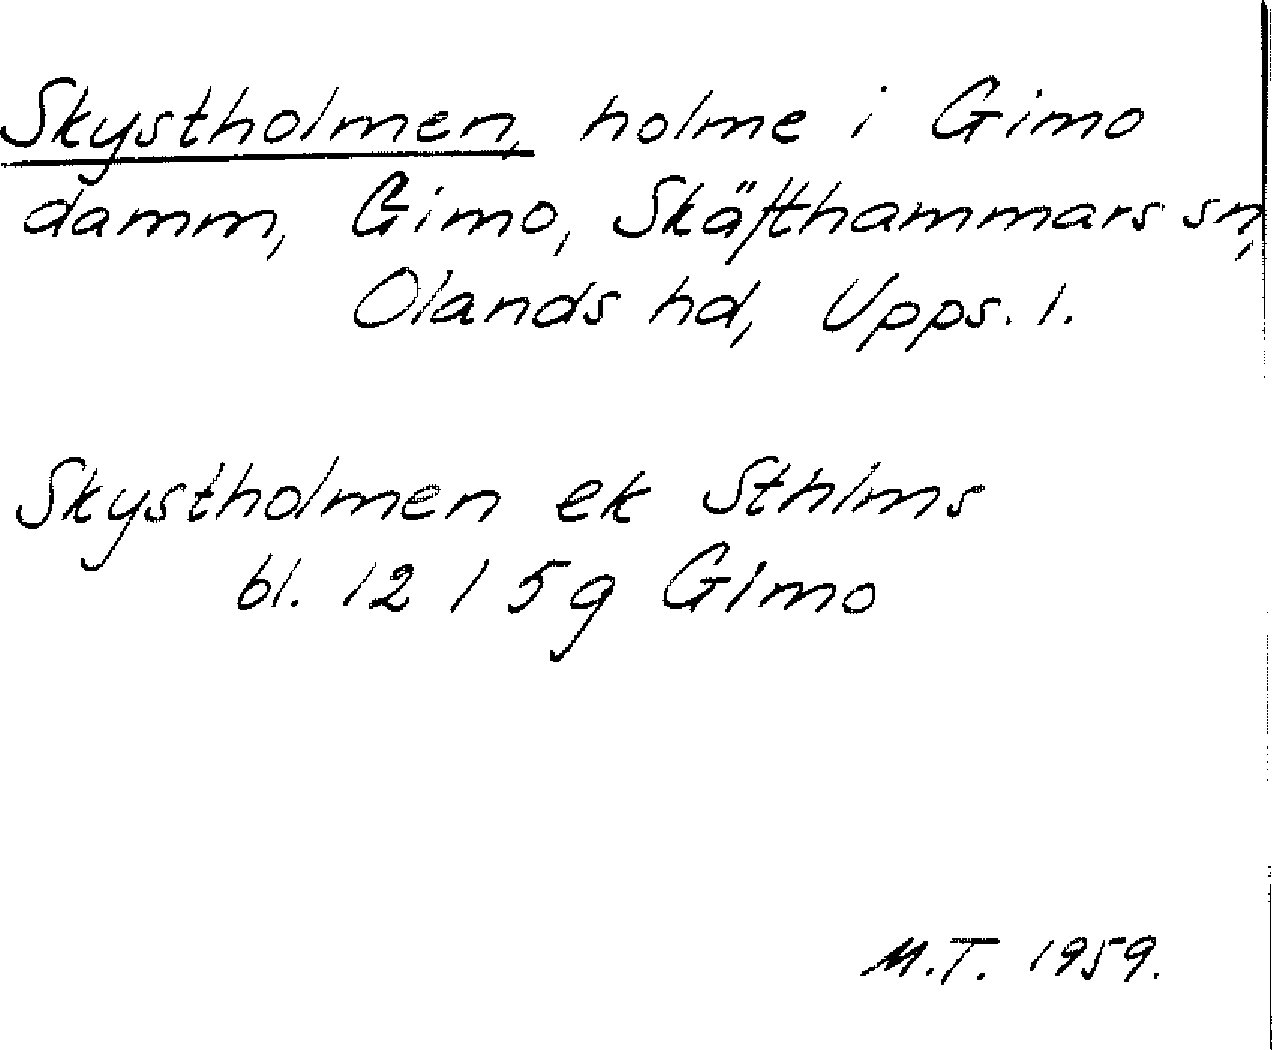 Skystholmen, holme i Gimo
damm, Gimo, Skäfthammars sn,
Olands hd, Upps. l.
Skystholmen ek Sthlms
bl. 12 I 5 g Gimo
M.T. 1959.